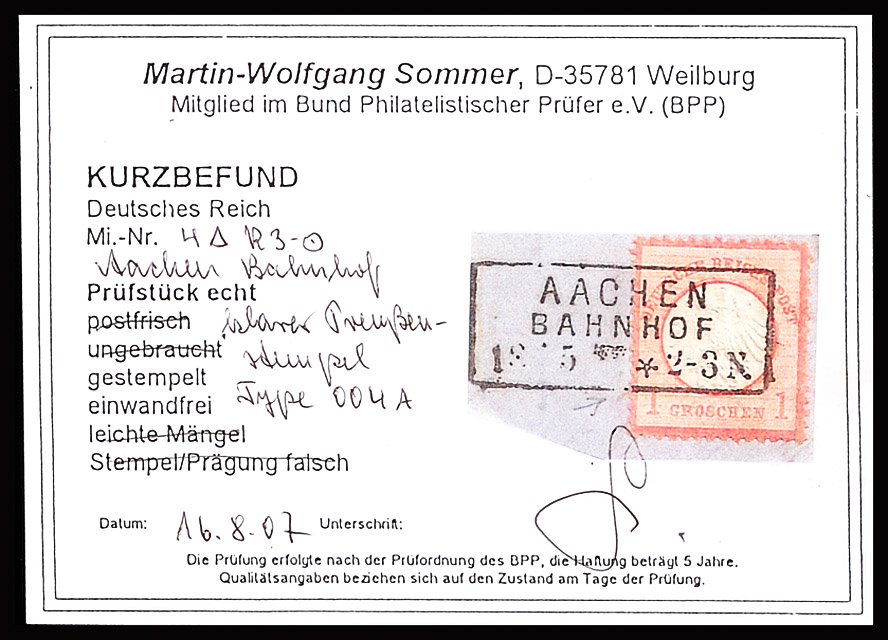 Martin-Wolfgang Sommer, D-35781 Weilburg
Mitglied im Bund Philatelistischer Prüfer e.V. (BPP)
KURZBEFUND
Deutsches Reich
Mi.-Nr. 4 Δ R3-⊙
Aachen Bahnhof
Prüfstück echt
postfrisch klarer Preußen-
ungebraucht stempel
gestempelt Type 004 A
einwandfrei
leichte Mängel
Stempel/Prägung falsch
DEUTSCHE REICHS-POST
AACHEN
BAHNHOF
18 5 * 2-3 N.
1 GROSCHEN 1
Datum: 16.8.07 Unterschrift:
Die Prüfung erfolgte nach der Prüfordnung des BPP, die Haftung beträgt 5 Jahre.
Qualitätsangaben beziehen sich auf den Zustand am Tage der Prüfung.